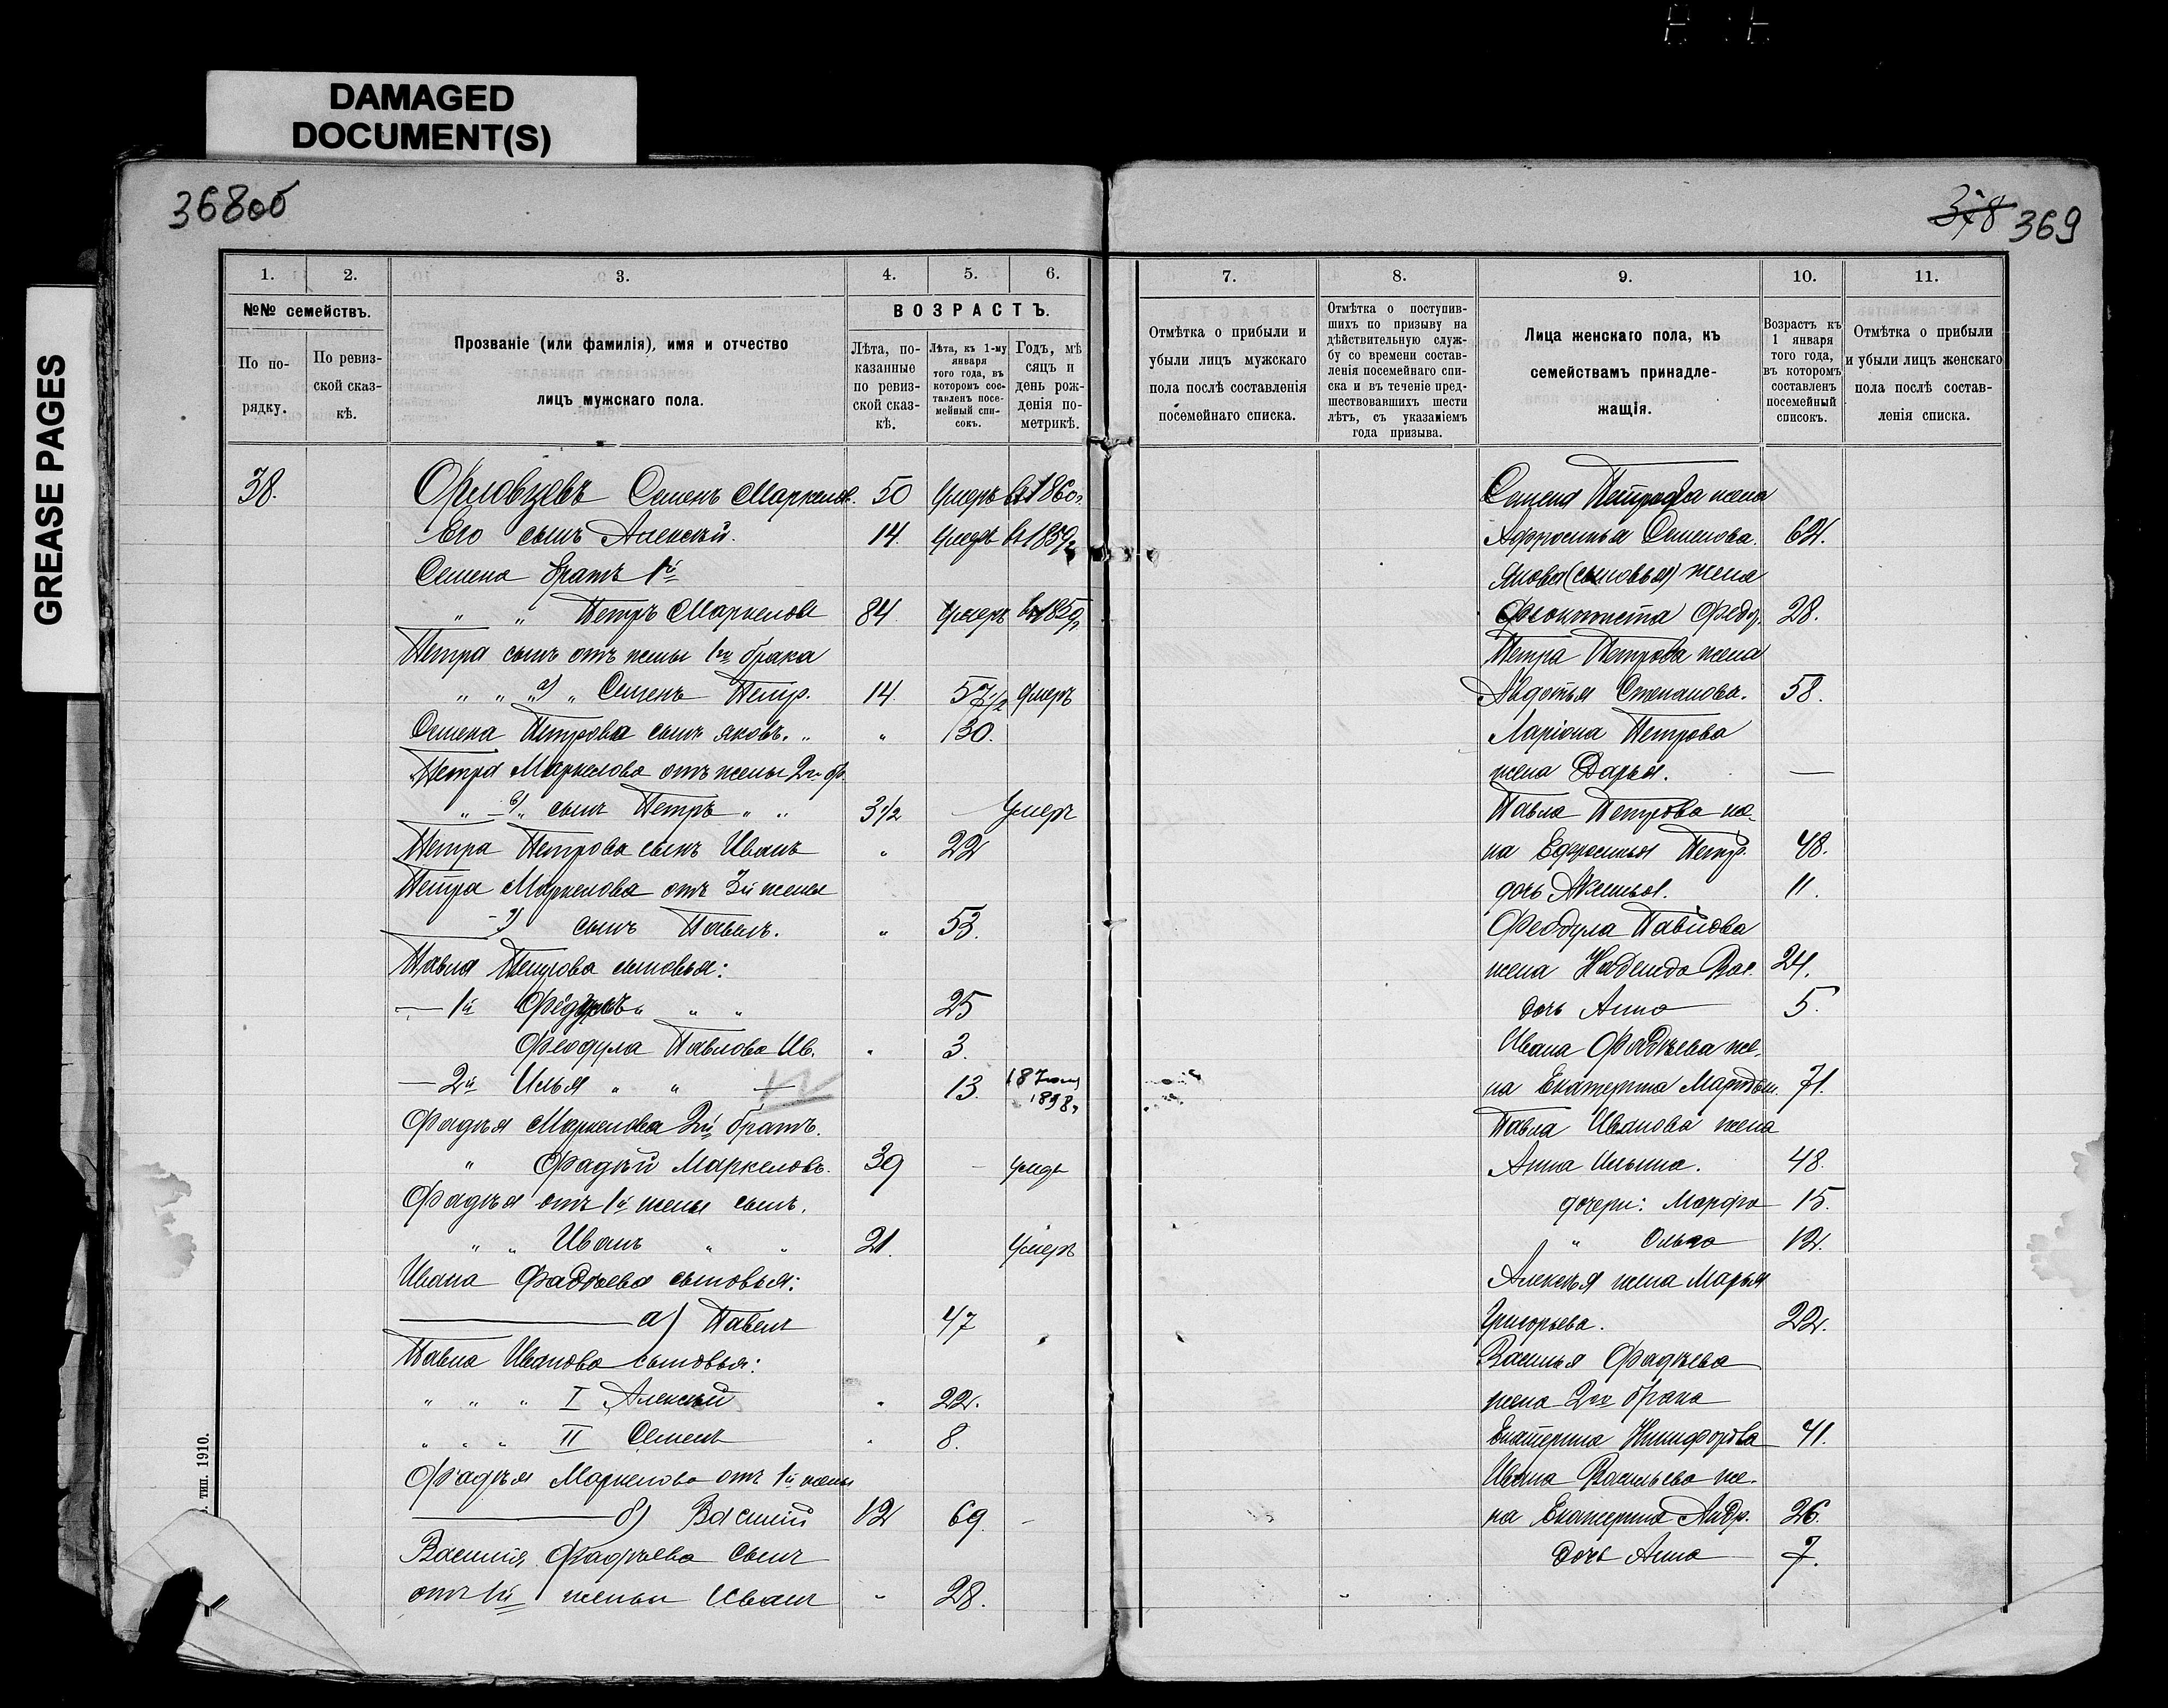 DAMAGED
DOCUMENT(S)
GREASE PAGES
368об
378 369
1. 2. 3. 4. 5. 6.
№№ семействъ.
По по-
рядку.
По ревиз-
ской сказ-
кѣ.
Прозваніе (или фамилія), имя и отчество
лицъ мужскаго пола.
ВОЗРАСТЪ.
Лѣта, по-
казанные
по ревиз-
ской сказ-
кѣ.
Лѣта, къ 1-му
января
того года, въ
которомъ сос-
тавленъ посе-
мейный спи-
сокъ.
Годъ, мѣ
сяцъ и
день рож-
денія по-
метрикѣ.
38. Семенъ Маркелов. 50 Умеръ въ 1860г.
Его сынъ Алексѣй. 14. Умеръ въ 1859г
Семена братъ 1й
" " Петръ Маркелов 84. Умеръ въ 1859г
Петра сынъ отъ жены 1го брака
" " а) " Семенъ Петр. 14. 57 1/2 Умеръ
Семена Петрова сынъ Яковъ. " " 30.
Петра Маркелова отъ жены 2го бр.
" б) " сынъ Петръ " " 3 1/2 - Умеръ
Петра Петрова сынъ Иванъ " 22
Петра Маркелова отъ 3й жены
сынъ Павелъ. " 53.
Павла Петрова сыновья:
— 1й " " " 25
Феодула Павлова Ив. " 3.
— 2й Илья " " 13. 18 Іюля
1898г
Фадѣя Маркелова 2й братъ.
" Фадѣй Маркеловъ. 39 - умеръ
Фадѣя отъ 1й жены сынъ.
" " Иванъ " " 21. Умеръ
Ивана Фадѣева сыновья:
а) Павелъ 47
Павла Иванова сыновья:
" " " I Алексѣй " 22.
" " " II Семенъ " 8.
Фадѣя Маркелова отъ 1й жены
б) Василій 12 69. -
Василія Фадѣева сынъ
отъ 1й жены Иванъ " 28.
тип. 1910.
7. 8. 9. 10. 11.
Отмѣтка о прибыли и
убыли лицъ мужскаго
пола послѣ составленія
посемейнаго списка.
Отмѣтка о поступив-
шихъ по призыву на
дѣйствительную служ-
бу со времени состав-
ленія посемейнаго спи-
ска и въ теченіе пред-
шествовавшихъ шести
лѣтъ, съ указаніемъ
года призыва.
Лица женскаго пола, къ
семействамъ принадле-
жащія.
Возрастъ къ
1 января
того года,
въ которомъ
составленъ
посемейный
списокъ.
Отмѣтка о прибыли
и убыли лицъ женскаго
пола послѣ состав-
ленія списка.
Семена Петрова жена
Афросинья Семенова. 64.
Якова (сыновья) жена
Федор. 28.
Петра Петрова жена
Авдотья Степанова. 58.
Ларіона Петрова
жена Дарья. —
Павла Петрова же-
на Ефросинья Петр. 48.
дочь Аксинья. 11.
Феодула Павлова
жена Надежда Вас. 24.
дочь Анна 5.
Ивана Фадѣева же-
на Екатерина 71.
Павла Иванова жена
Анна Ильина. 48.
дочери: Марфа 15.
" Ольга 12.
Алексѣя жена Марья
Григорьева. 22.
Василья Фадѣева
жена 2го брака
Екатерина Никифорова 41.
Ивана Васильева же-
на Екатерина Андр. 26.
дочь Анна 7.